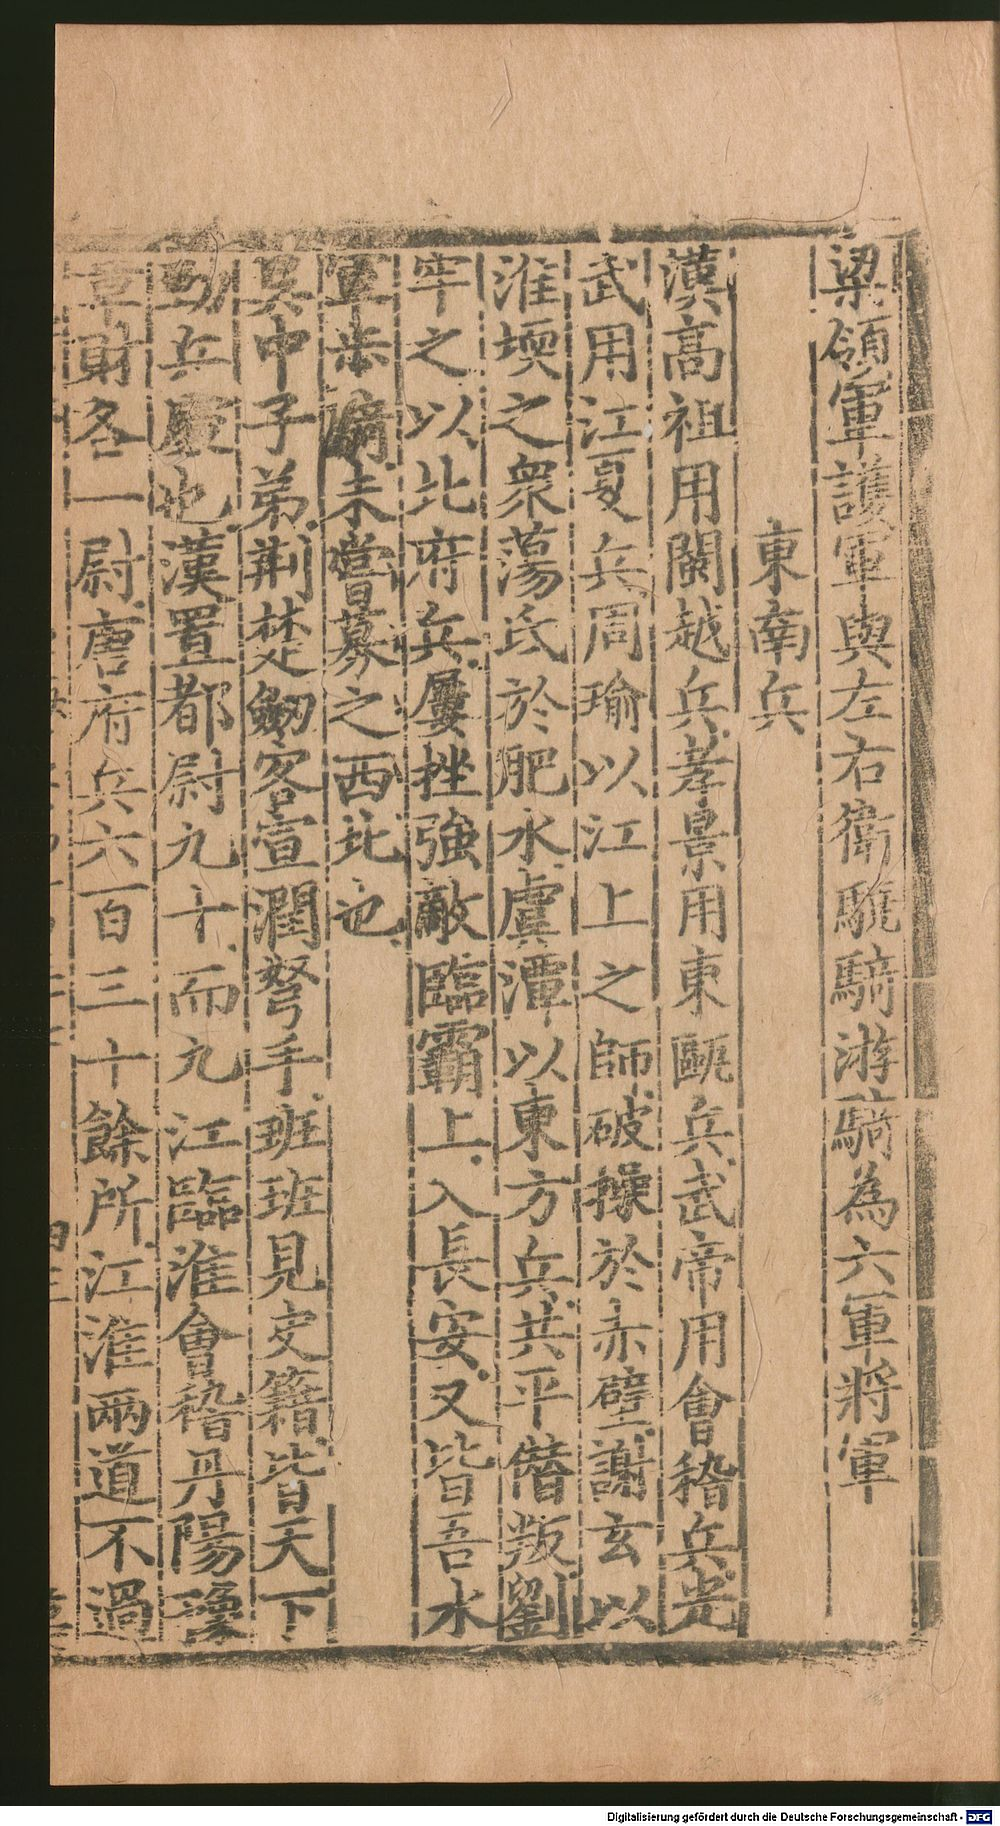 梁領軍護軍與左右衛驍騎游騎為六軍將軍
東南兵
漢高祖用閩越兵孝景用東甌兵武帝用會稽兵光
武用江夏兵周瑜以江上之師破操於赤壁謝玄以
淮堧之衆蕩氐於肥水虞潭以東方兵共平僭叛劉
牢之以北府兵屢挫強敵臨霸上入長安又皆吾水
軍步 未嘗募之西北也
吳中子弟荆楚劒客宣潤弩手班班見史籍皆天下
勁兵 也漢置都尉九十而九江臨淮會稽丹陽豫
章財各一尉唐府兵六百三十餘所江淮兩道不過
Digitalisierung gefördert durch die Deutsche Forschungsgemeinschaft - DFG